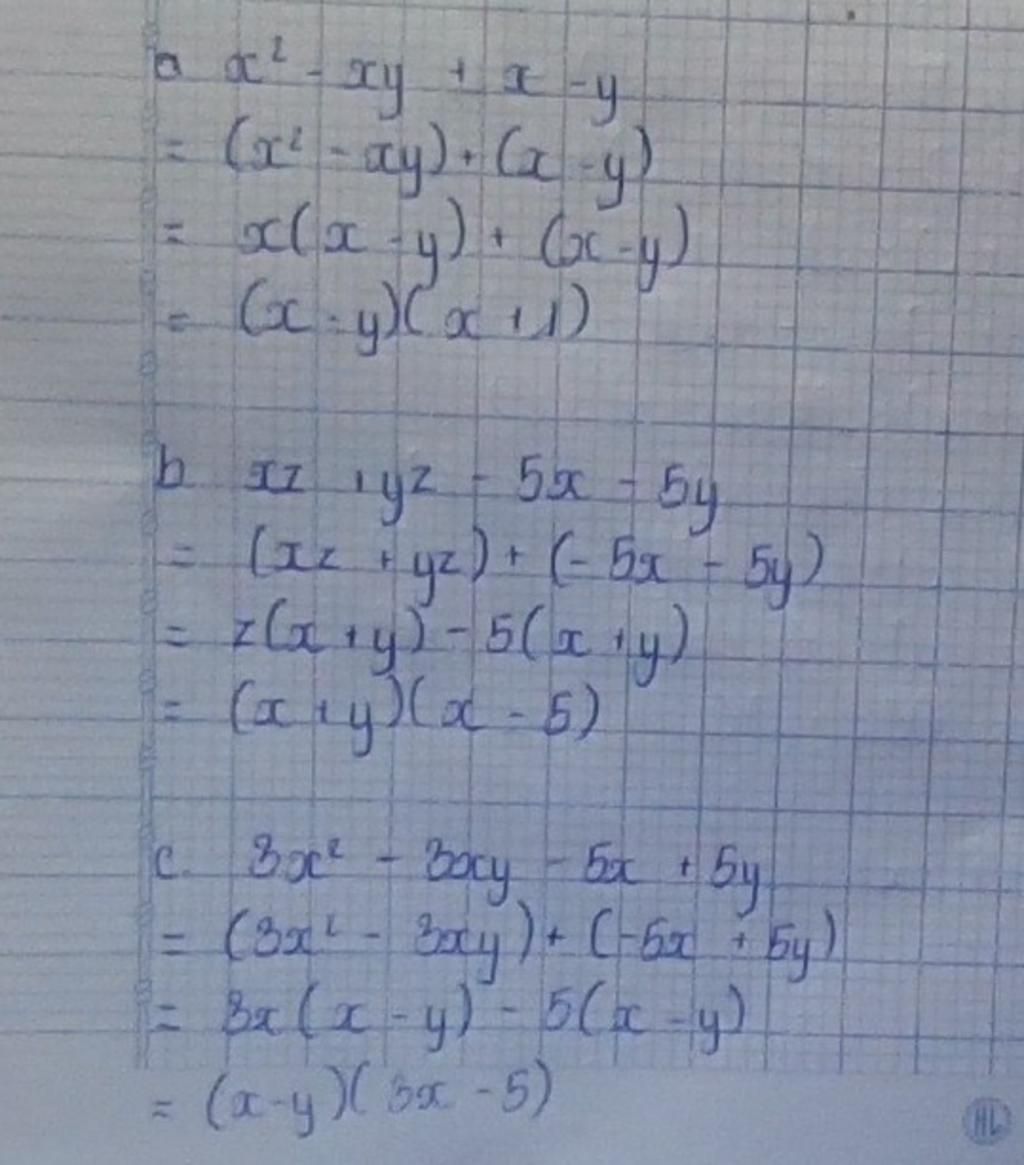 a x² - xy + x - y
= (x² - xy) + (x - y)
= x(x - y) + (x - y)
= (x - y)(x + 1)
b xz + yz - 5x - 5y
= (xz + yz) + (- 5x - 5y)
= z(x + y) - 5(x + y)
= (x + y)(x - 5)
c. 3x² - 3xy - 5x + 5y
= (3x² - 3xy) + (-5x + 5y)
= 3x(x - y) - 5(x - y)
= (x - y)(3x - 5)
HL